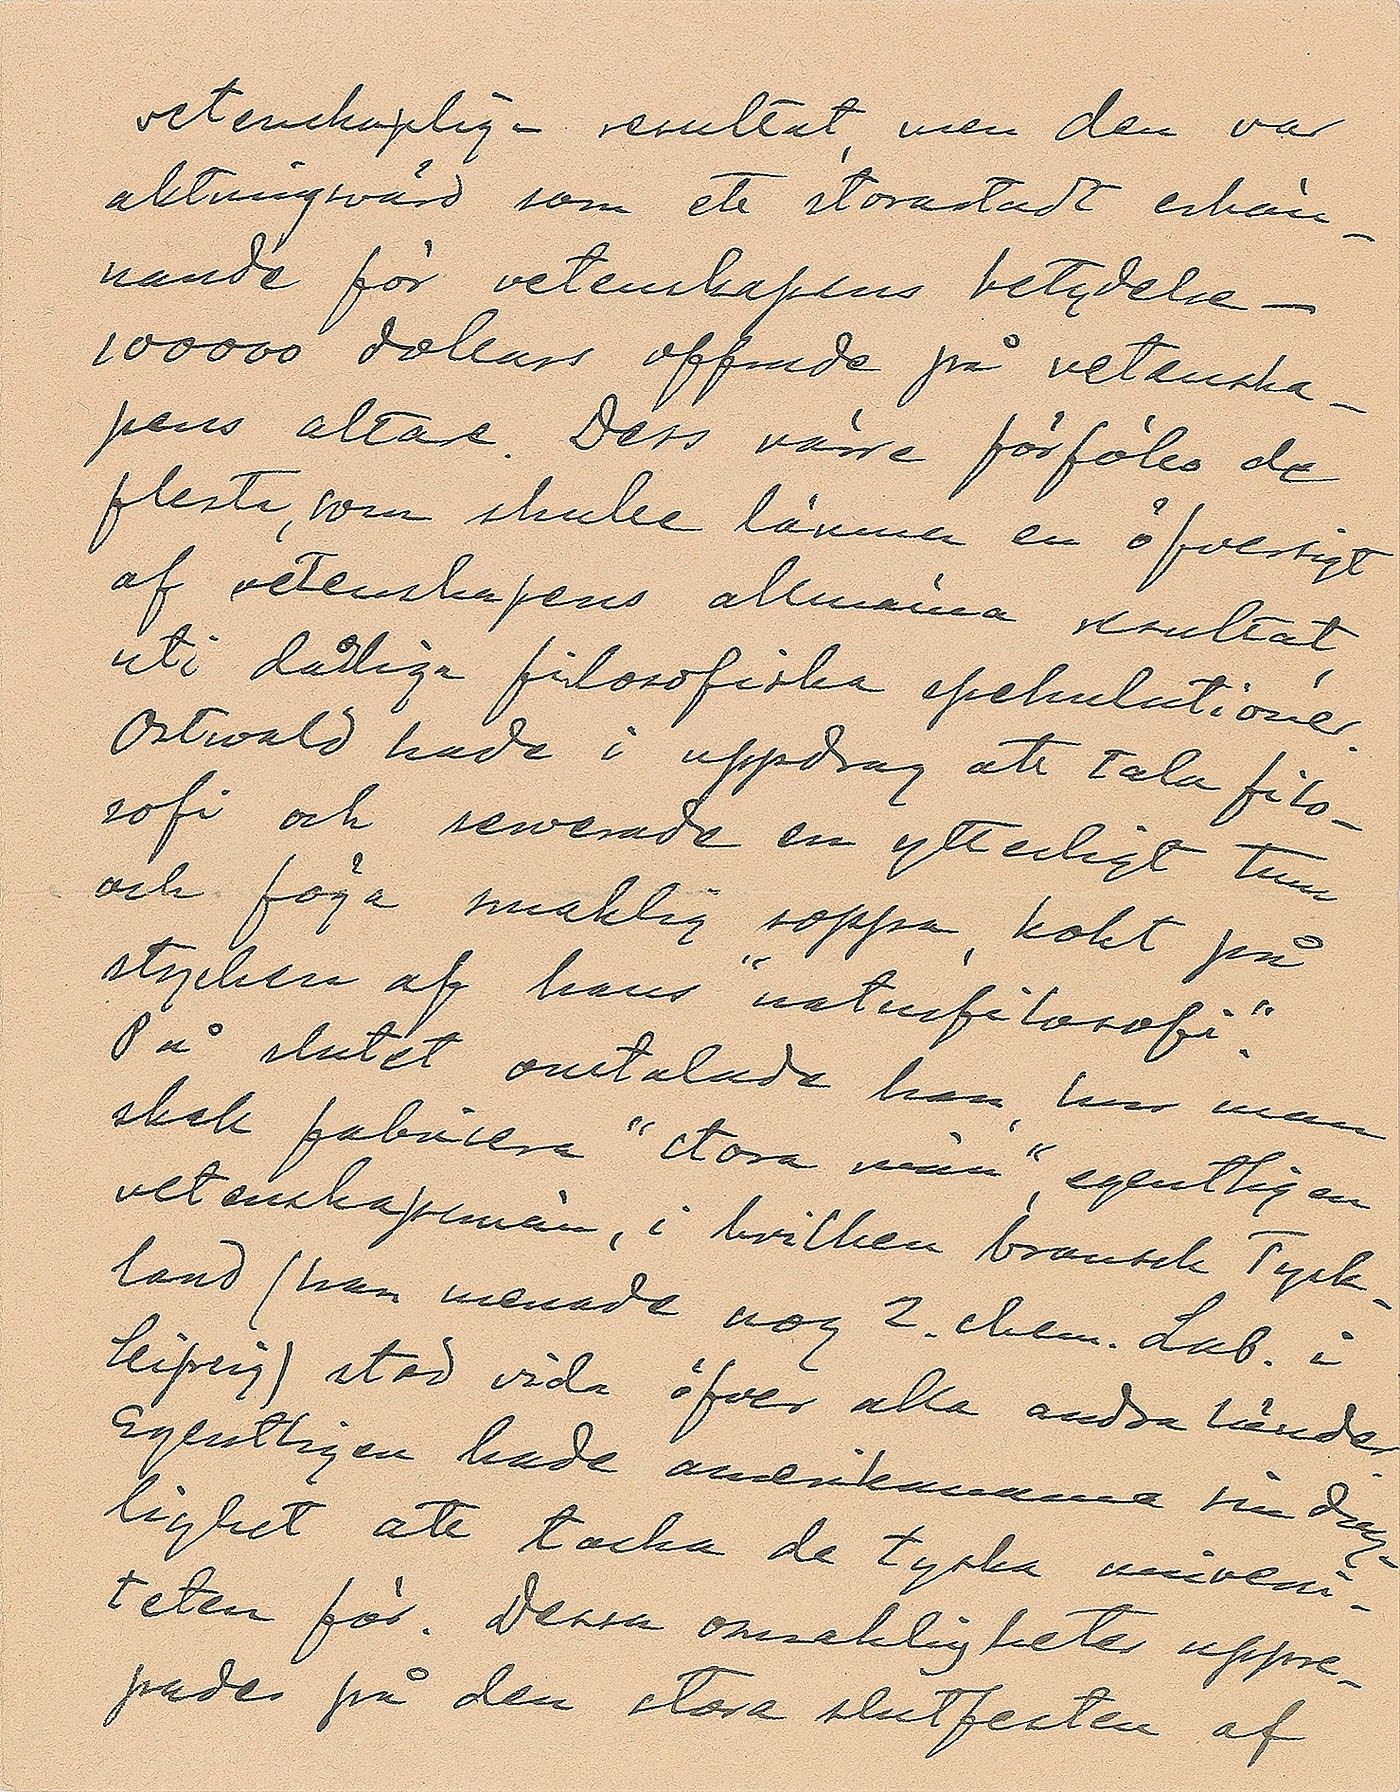 vetenskaplig- resultat, men den var
aktningsvärd som ett storastadt erkän-
nande för vetenskapens betydelse –
100000 dollars offrade på vetenska-
pens altare. Dess värre förföllo de
flesta, som skulle lämna en öfversigt
af vetenskapens allmänna resultat,
uti dåliga filosofiska spekulationer.
Ostwald hade i uppdrag att tala filo-
sofi och serverade en ytterligt tunn
och föga smaklig soppa, kokt på
stycken af hans "naturfilosofi".
På slutet omtalade han, hur man
skall fabricera "stora män", egentligen
vetenskapsmän, i hvilken bransch Tysk-
land (han menade nog 2. chem. Lab. i
Leipzig) stod vida öfver alla andra länder.
Egentligen hade amerikanarna sin dug-
lighet att tacka de tyska universi-
teten för. Dessa osmakligheter uppre-
pades på den stora slutfesten af